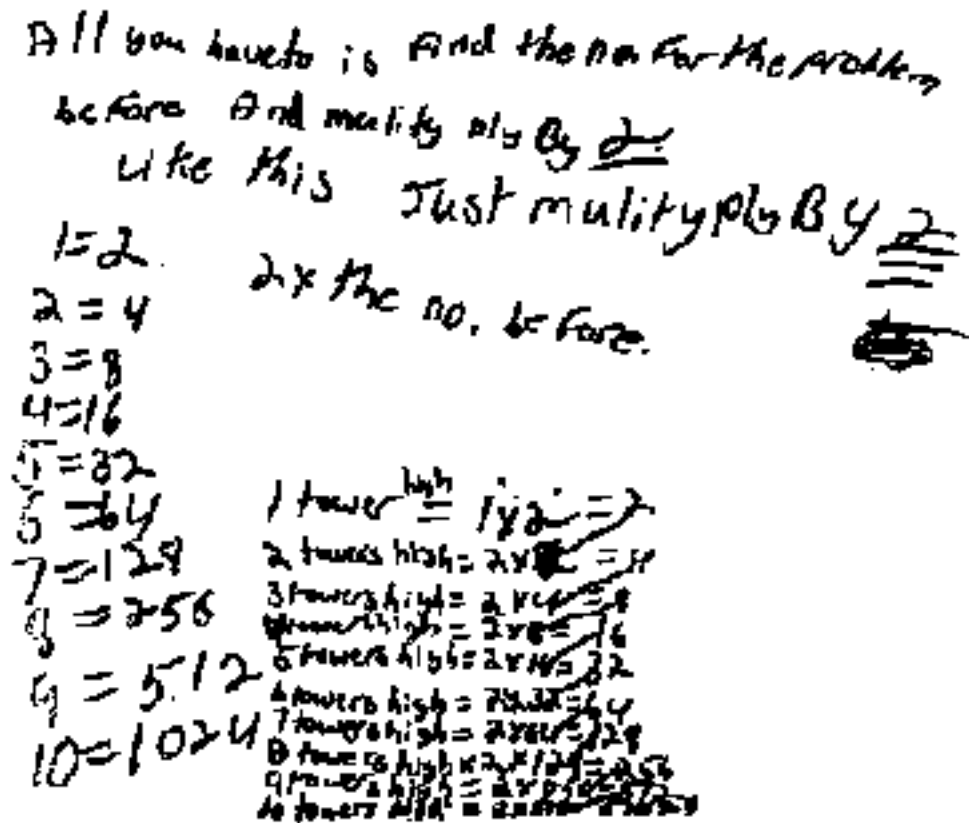 All you haveto is find the no. For the problem
before And mulity ply By 2
Like this Just mulityply By 2
1=2
2x the no. before.
2=4
3=8
4=16
5=32
6=64
7=128
8=256
9=512
10=1024
1 tower high = 1x2 = 2
2 towers high = 2x2 = 4
3 towers high = 2x4 = 8
4 towers high = 2x8 = 16
5 towers high = 2x16 = 32
6 towers high = 2x32 = 64
7 towers high = 2x64 = 128
8 towers high x 2x128 = 256
9 towers high = 2x
10 towers high =